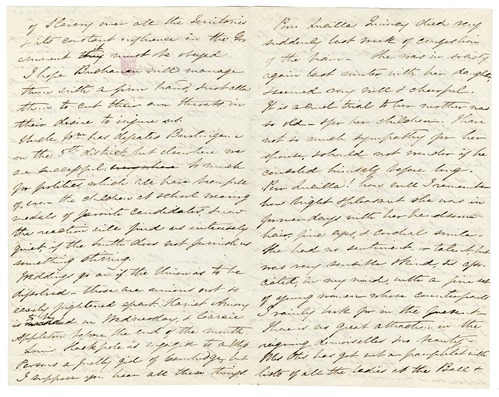 of Slavery over all the territories
& its constant influence in the Gov
ernment they must be obeyed.
I hope Buchanan will manage
them with a firm hand, & not allow
them to cut their own throats in
their desire to injure us.
Uncle Wm has defeated Burlingame
in the 5th district, but elsewhere we
are successful. So much
for politics, which we have been full
of, even the children at school wearing
medals of favorite candidates, & now
the reaction will find us intensely
quiet, if the South does not furnish us
something stirring.
Weddings go on if the Union is to be
dissolved - these are unions not so
easily frightened apart. Harriet Amory
is to be married on Wednesday, & Carrie
Appleton before the end of the month
is engaged to a Miss
Parsons a pretty girl of Cambridge, but
I suppose you hear all these things.
Poor Lucilla Quincy died very
suddenly last week of congestion
of the brain - She was in society
again last winter with her daughter
& seemed very well & cheerful.
It is a cruel trial to her mother now
so old - & for her children. I have
not so much sympathy for her
spouse, & should not wonder if he
consoled himself before long.
Poor Lucilla! how well I remember
how bright & pleasant she was in
former days, with her handsome
hair, fine eyes, & cordial smile.
She had no sentiment, & talent but
was very sensible & kind & is asso-
ciated, in my mind, with a fine set
of young women whose counterparts
I vainly look for in the present
There is no great attraction in the
reigning demoiselles, no beauty.
Mrs Otis has got out a pamphlet with
lists of all the ladies at the Ball &